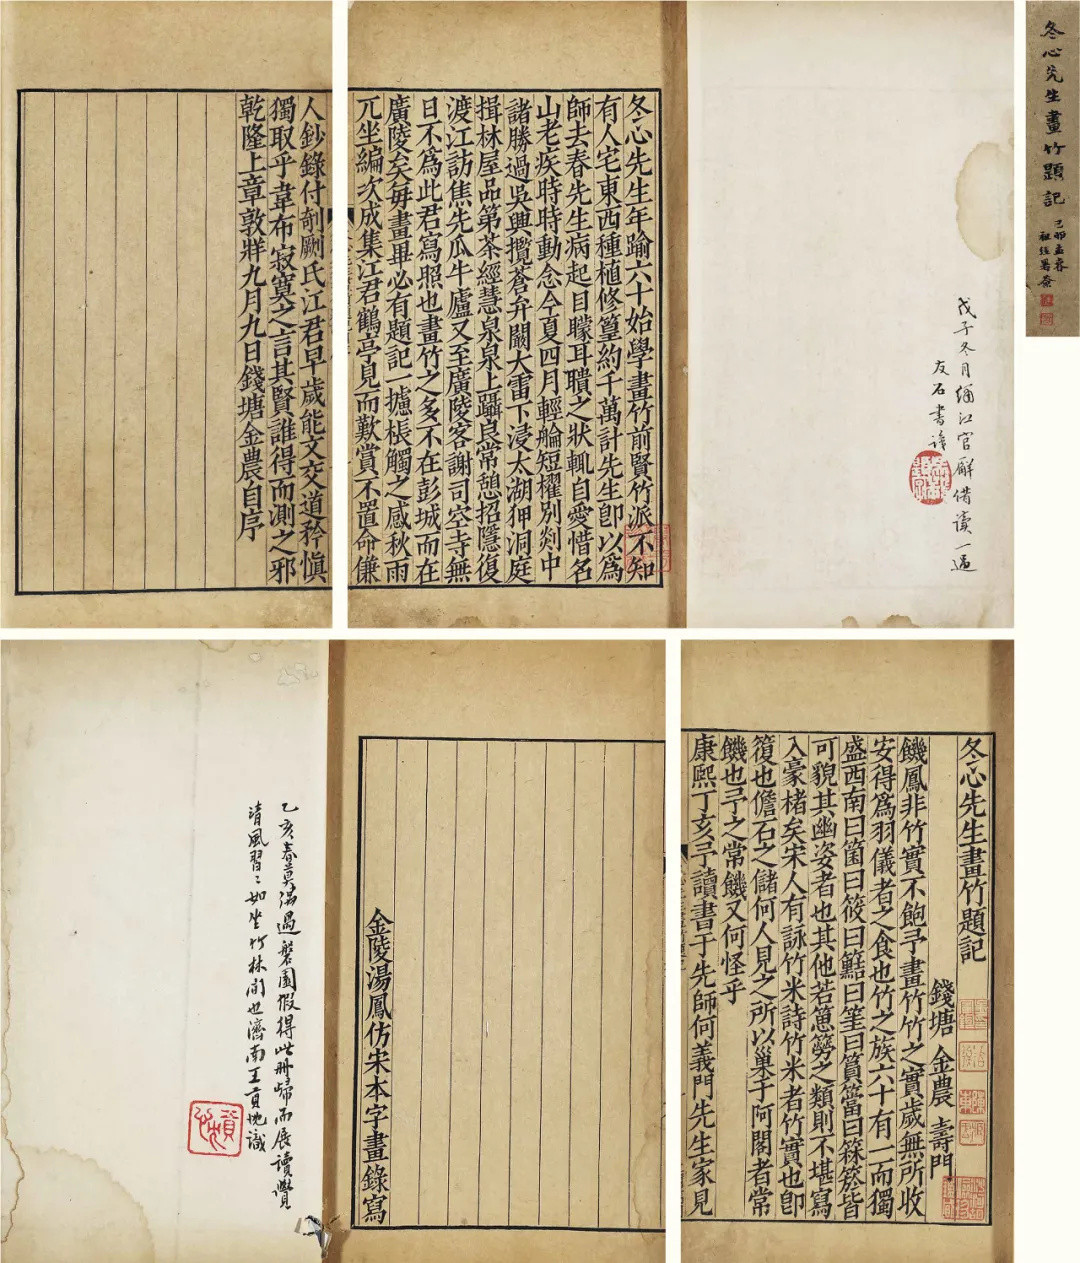 冬心先生畫竹題記
己卯孟春
祖經署耑
戊子冬月緬江官廨借讀一過
友石書
冬心先生年踰六十始學畫竹前賢竹派不知
有人宅東西種植修篁約千萬計先生即以為
師去春先生病起目矇耳聵之狀輒自愛惜名
山老疾時時動念今夏四月輕艫短櫂別剡中
諸勝過吳興攬蒼弁闞大雷下浸太湖狎洞庭
揖林屋品第茶經慧泉泉上躡良常憩招隱復
渡江訪焦先瓜牛廬又至廣陵客謝司空寺無
日不為此君寫照也畫竹之多不在彭城而在
廣陵矣每畫畢必有題記一攄棖觸之感秋雨
兀坐編次成集江君鶴亭見而歎賞不置命傔
人鈔錄付剞劂氏江君早歲能文交道矜慎
獨取乎韋布寂寞之言其賢誰得而測之邪
乾隆上章敦牂九月九日錢塘金農自序
冬心先生畫竹題記
錢塘 金農 壽門
饑鳳非竹實不飽予畫竹竹之實歲無所收
安得為羽儀者之食也竹之族六十有一而獨
盛西南曰箘曰筱曰曰筀曰篔簹曰箖箊皆
可貌其幽姿者也其他若簩之類則不堪寫
入豪楮矣宋人有詠竹米詩竹米者竹實也即
也儋石之儲何人見之所以巢于阿閣者常
饑也予之常饑又何怪乎
康熙丁亥予讀書于先師何義門先生家見
金陵湯鳳仿宋本字畫錄寫
乙亥春莫過磐園假得此冊歸而展讀覺
清風習〻如坐竹林間也濟南王貢忱識